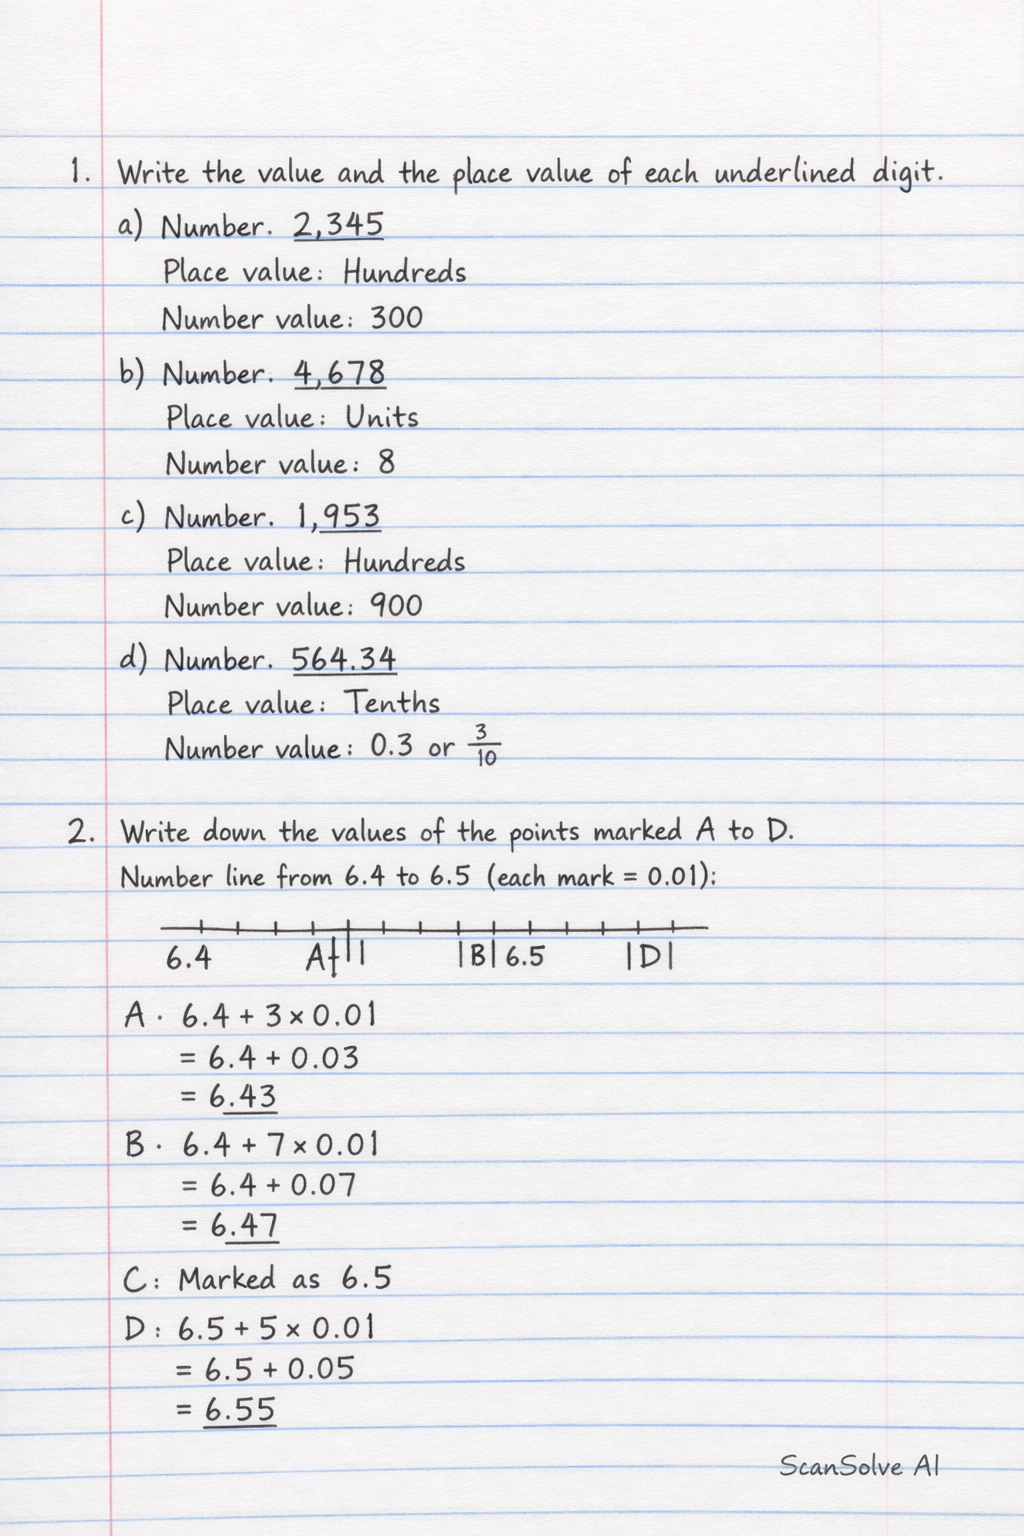 1. Write the value and the place value of each underlined digit.
a) Number. 2,345
Place value: Hundreds
Number value: 300
b) Number. 4,678
Place value: Units
Number value: 8
c) Number. 1,953
Place value: Hundreds
Number value: 900
d) Number. 564.34
Place value: Tenths
Number value: 0.3 or 3/10
2. Write down the values of the points marked A to D.
Number line from 6.4 to 6.5 (each mark = 0.01):
6.4 A |B| 6.5 |D|
A. 6.4 + 3 × 0.01
= 6.4 + 0.03
= 6.43
B. 6.4 + 7 × 0.01
= 6.4 + 0.07
= 6.47
C: Marked as 6.5
D: 6.5 + 5 × 0.01
= 6.5 + 0.05
= 6.55
ScanSolve AI